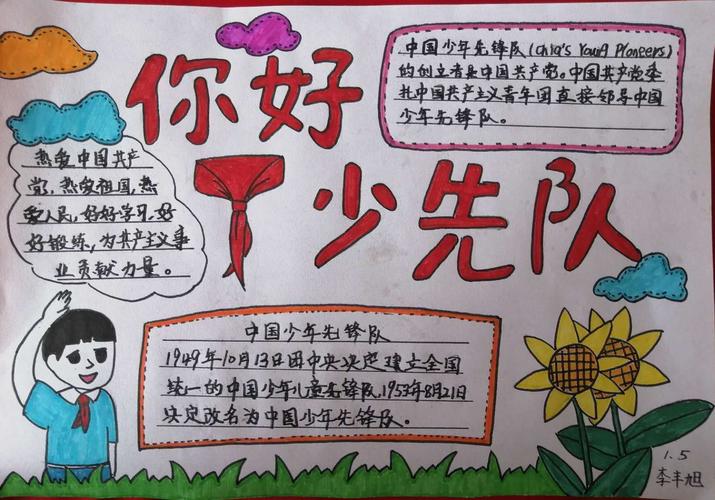 你好
少先队
中国少年先锋队(Chia's Young Pioneers)
的创立者是中国共产党。中国共产党委
托中国共产主义青年团直接领导中国
少年先锋队。
热爱中国共产
党,热爱祖国,热
爱人民,好好学习,好
好锻炼,为共产主义事
业贡献力量。
中国少年先锋队
1949年10月13日团中央决定建立全国
统一的中国少年儿童先锋队,1953年8月21日
决定改名为中国少年先锋队。
1.5
李丰旭